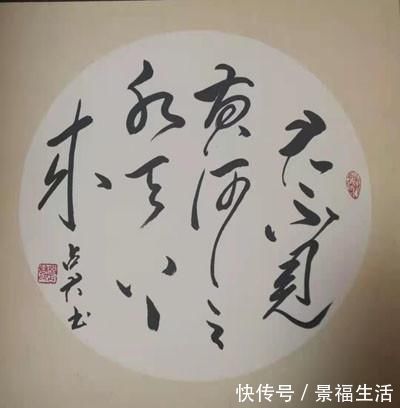 君不見
黄河之
水天上
来
占君书
快传号 / 景福生活